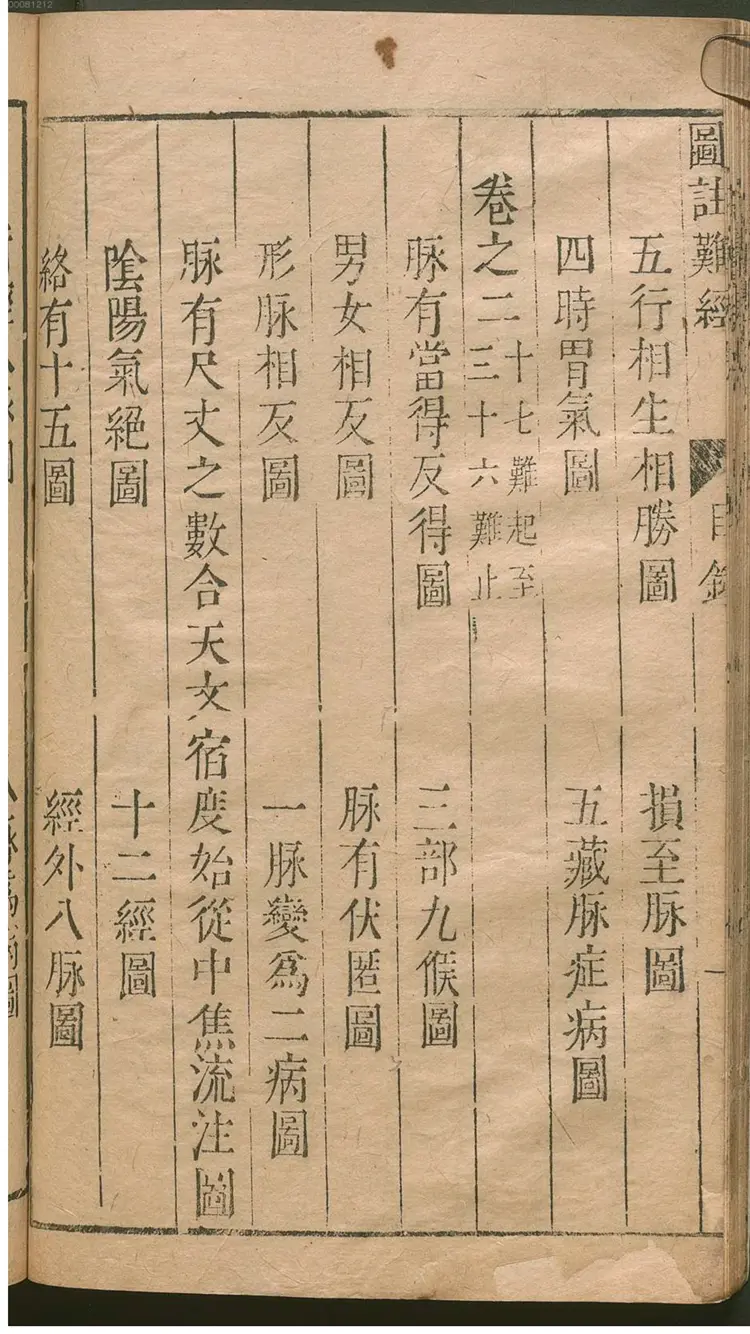 00081212
圖註難經 目錄 一
五行相生相勝圖 損至脉圖
四時胃氣圖 五藏脉症病圖
卷之二 十七難起至三十六難止
脉有當得反得圖 三部九候圖
男女相反圖 脉有伏匿圖
形脉相反圖 一脉變爲二病圖
脉有尺丈之數合天文宿度始從中焦流注圖
陰陽氣絕圖 十二經圖
絡有十五圖 經外八脉圖